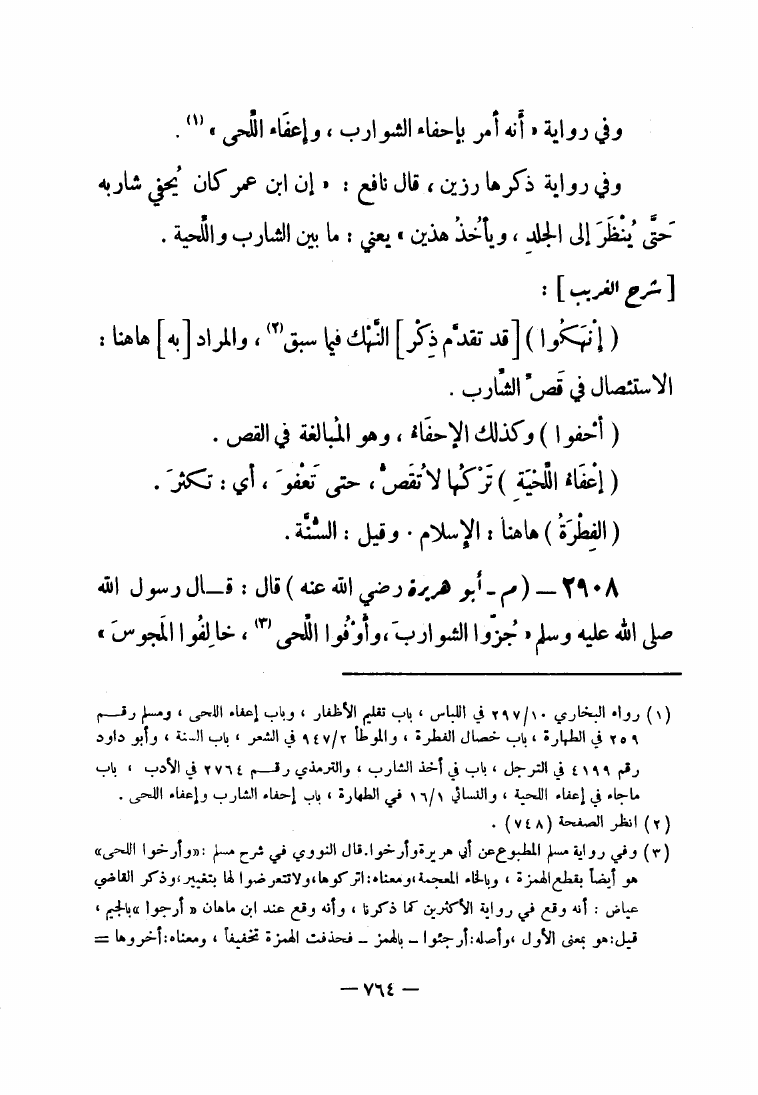 وفي رواية « أَنه أمر بإحفاء الشوارب ، وإعفَاء اللَّحى » (١) .
وفي رواية ذكرها رزين ، قال نافع : « إن ابن عمر كان يُحفي شاربه
حَتَّى يُنْظَرَ إلى الجلدِ ، ويأخُذُ هذين » يعني : ما بين الشارب واللَّحية .
[ شرح الغريب ] :
( إنْهَكُوا ) [ قد تقدَّم ذِكْر ] النَّهْك فيما سبق(٢) ، والمراد [ به ] هاهنا :
الاستئصال في قَصِّ الشَّارب .
( أحفوا ) وكذلك الإحفَاءُ ، وهو المُبالغة في القص .
( إعْفَاءُ اللَّحْيَةِ ) تَرْكُها لا تُقَصُّ ، حتى تَعْفُوَ ، أي : تكثرَ .
( الفِطْرَةُ ) هاهنا : الإسلام . وقيل : السُّنَّة .
٢٩٠٨ – ( م - أبو هريرة رضي الله عنه ) قال : قـال رسول الله
صلى الله عليه وسلم « جُزّوا الشواربَ ، وأَوْفُوا اللَّحى (٣) ، خالِفُوا المَجوسَ »
(١) رواه البخاري ٢٩٧/١٠ في اللباس ، باب تقليم الأظفار ، وباب إعفاء اللحى ، ومسلم رقـم
٢٥٩ في الطهارة ، باب خصال الفطرة ، والموطأ ٩٤٧/٢ في الشعر ، باب السنة ، وأبو داود
رقم ٤١٩٩ في الترجل ، باب في أخذ الشارب ، والترمذي رقـم ٢٧٦٤ في الأدب ، باب
ماجاء في إعفاء اللحية ، والنسائي ١٦/١ في الطهارة ، باب إحفاء الشارب وإعفاء اللحى .
(٢) انظر الصفحة (٧٤٨) .
(٣) وفي رواية مسلم المطبوع عن أبي هريرة وأرخوا. قال النووي في شرح مسلم : «وأرخوا اللحى»
هو أيضاً بقطع الهمزة ، وبالخاء المعجمة ،ومعناه: اتركوها، ولا تتعرضوا لها بتغيير، وذكر القاضي
عياض : أنه وقع في رواية الأكثرين كما ذكرنا ، وأنه وقع عند ابن ماهان « أرجوا » بالجيم ،
قيل: هو بمعنى الأول ،وأصله: أرجئوا – بالهمز – فحذفت الهمزة تخفيفاً ، ومعناه: أخروها =
– ٧٦٤ –